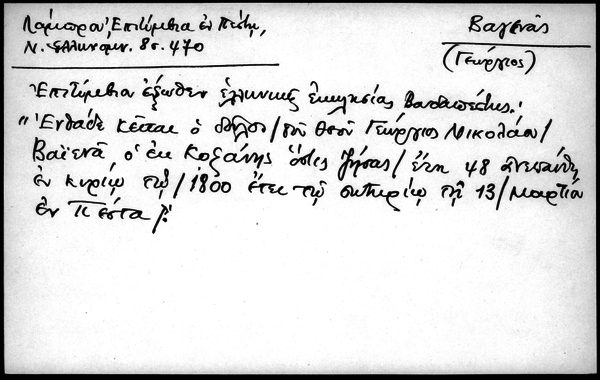 Λάμπρου, Ἐπιτύμβια ἐν Πέστῃ,
Ν. Ἑλληνομν. 8 σ. 470
Βαγενᾶς
(Γεώργιος)
Ἐπιτύμβια ἔξωθεν ἑλληνικῆς ἐκκλησίας Βουδαπέστης:
"Ἐνθάδε κεῖται ὁ δοῦλος / τοῦ Θεοῦ Γεώργιος Νικολάου /
Βαϊενᾶ, ὁ ἐκ Κοζάνης ὅστις ζήσας / ἔτη 48 ἀνεπαύθη
ἐν κυρίῳ τῷ / 1800 ἔτει τῷ σωτηρίῳ τῇ 13 / Μαρτίου
ἐν Πέστᾳ /."